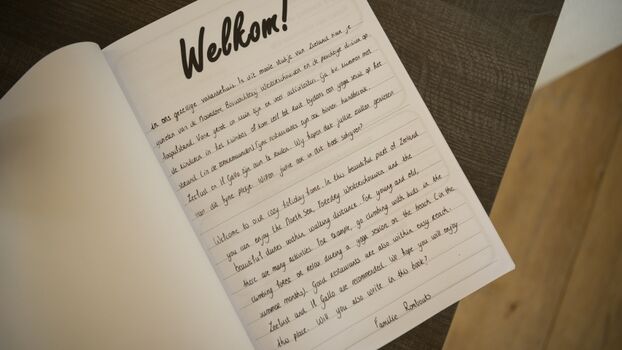 Welkom!
in ons gezellige vakantiehuis. In dit mooie stukje van Zeeland kan je
genieten van de Noordzee, Boswachterij Westerschouwen en de prachtige duinen op
loopafstand. Voor groot en klein zijn er veel activiteiten. Ga bv. klimmen met
de kinderen in het klimbos of kom tot rust tijdens een yoga sessie op het
strand (in de zomermaanden). Fijne restaurants zijn ook binnen handbereik.
Zeelust en Il Gallo zijn aan te raden. Wij hopen dat jullie zullen genieten
van dit fijne plekje. Willen jullie ook in dit boek schrijven?
Welcome to our cosy holiday home. In this beautiful part of Zeeland
you can enjoy the North Sea, Forestry Westerschouwen and the
beautiful dunes within walking distance. For young and old,
there are many activities. For example, go climbing with kids in the
climbing forest or relax during a yoga session on the beach (in the
summer months). Good restaurants are also within easy reach.
Zeelust and Il Gallo are recommended. We hope you will enjoy
this place. Will you also write in this book?
Familie Rombouts